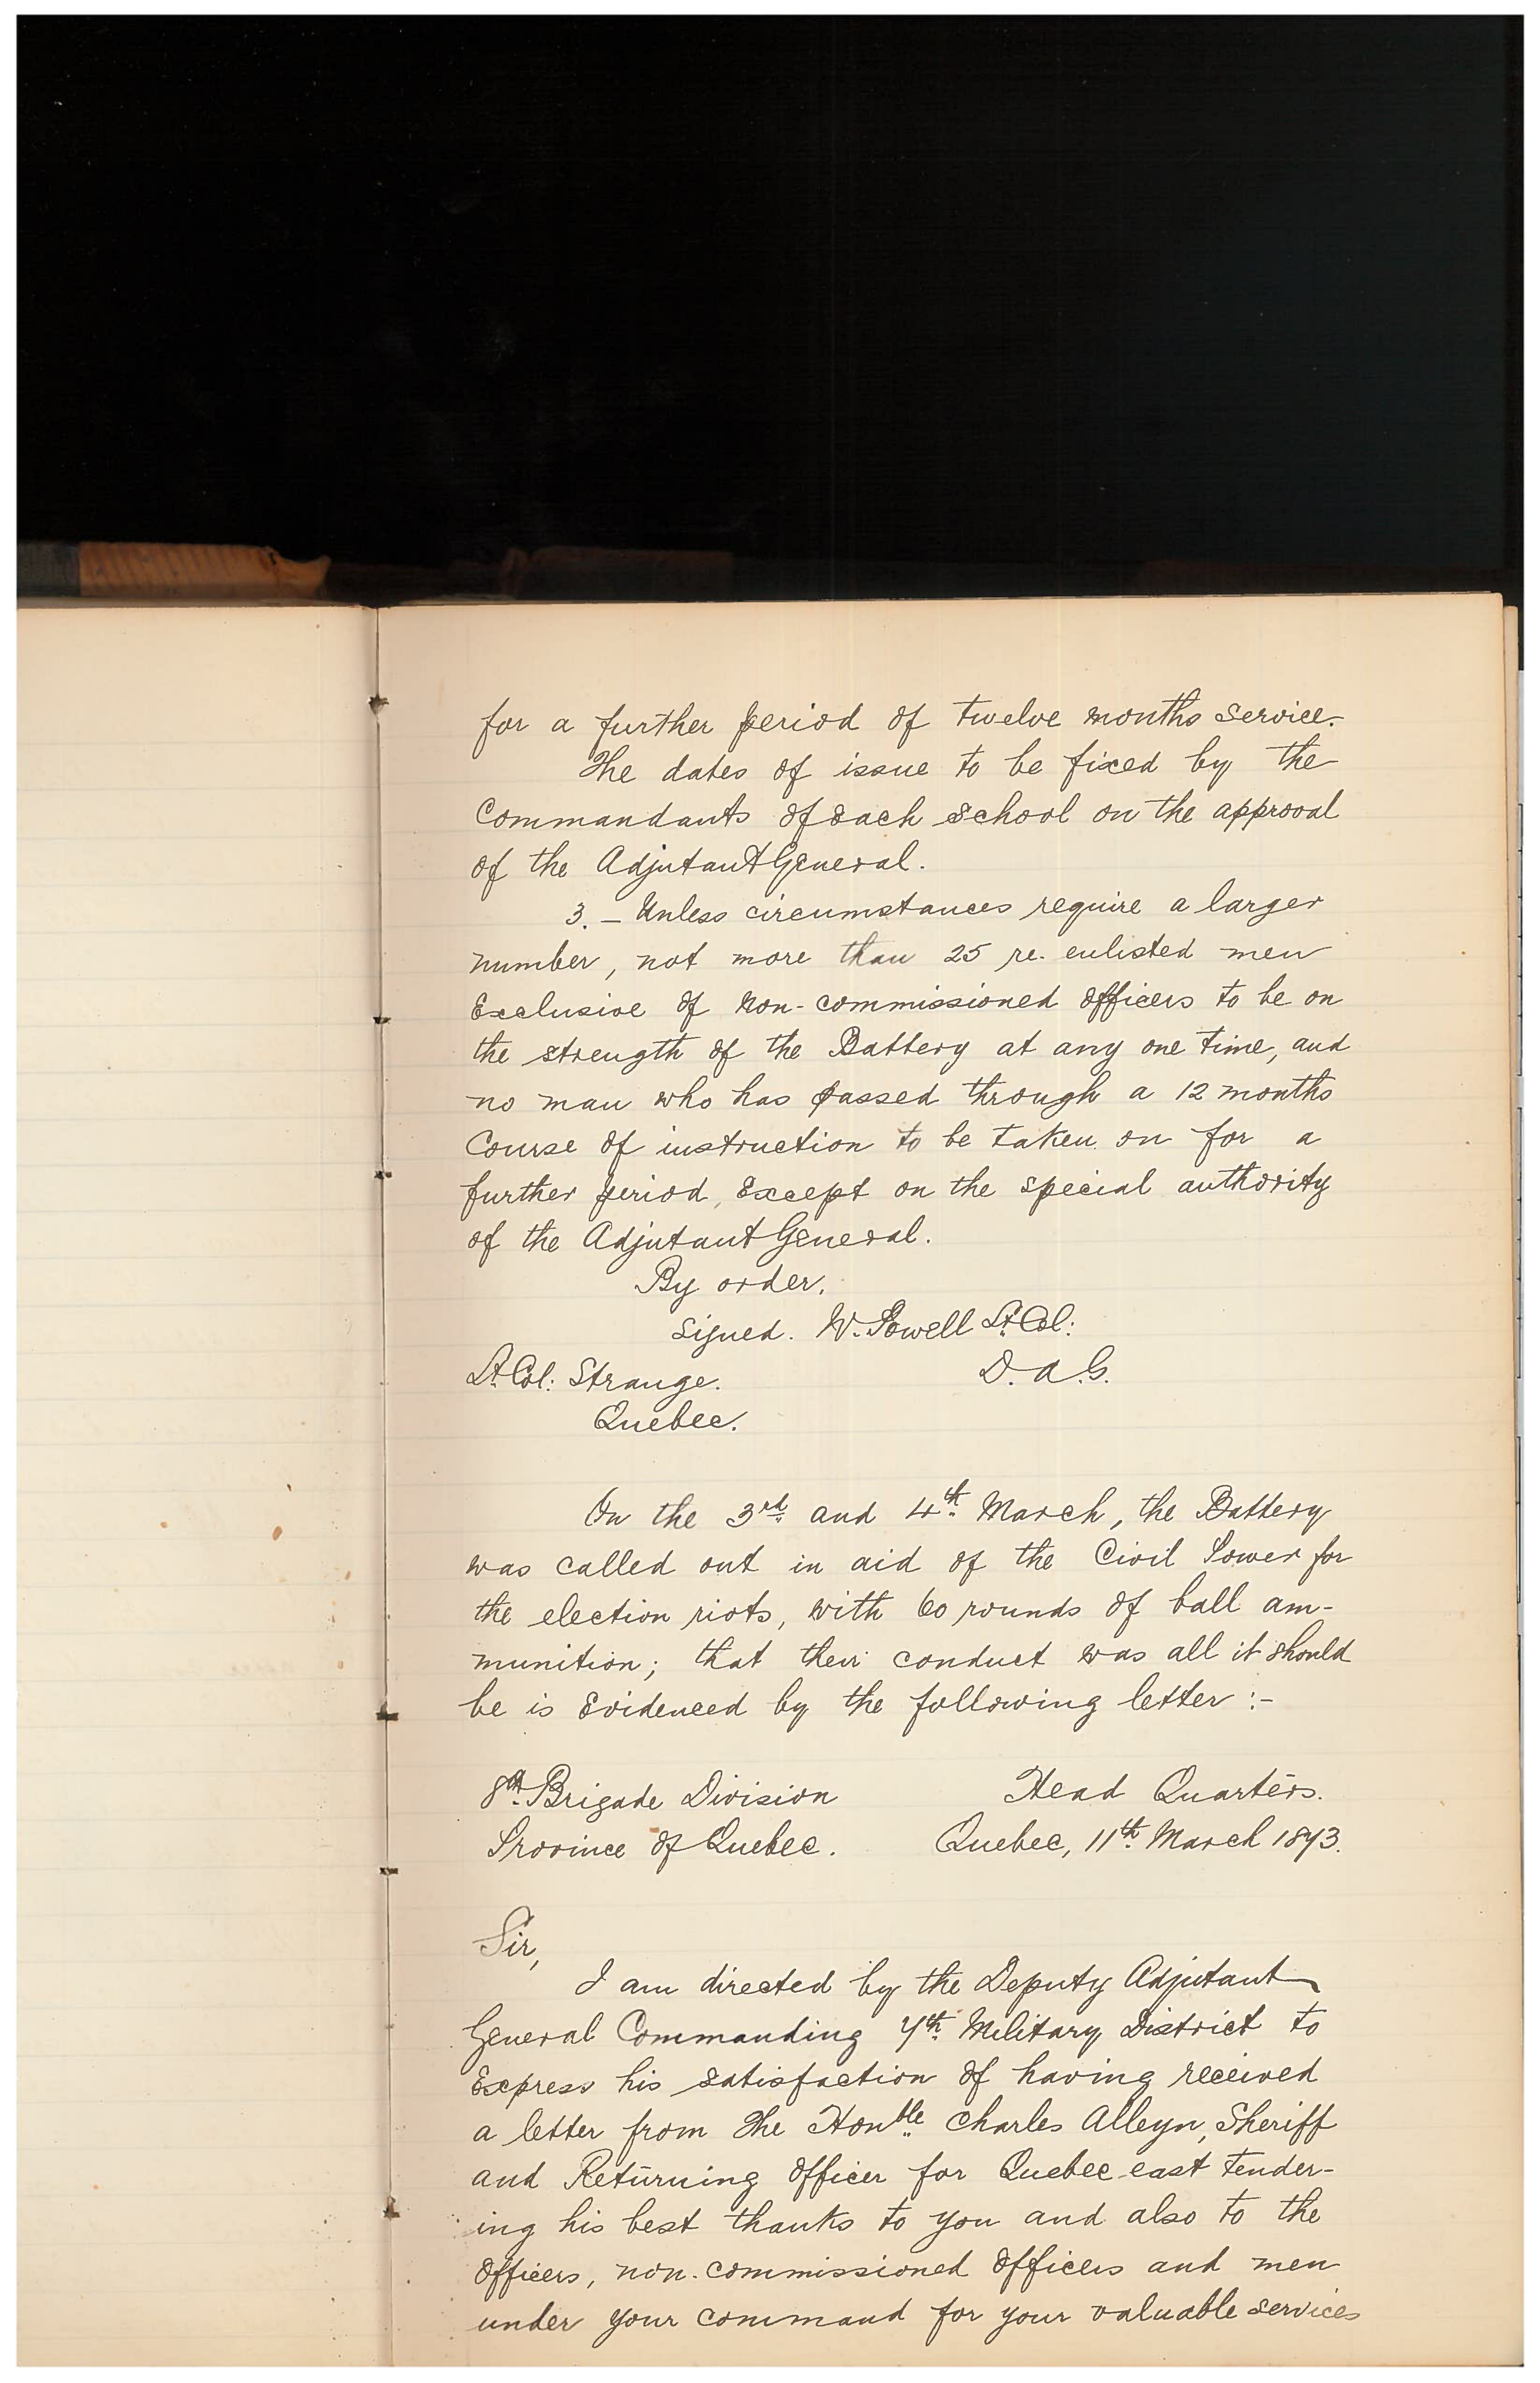 for a further period of twelve months service.
The dates of issue to be fixed by the
Commandants of each school on the approval
of the Adjutant General.
3. - Unless circumstances require a larger
number, not more than 25 re-enlisted men
Exclusive of Non-commissioned Officers to be on
the strength of the Battery at any one time, and
no man who has passed through a 12 months
Course of instruction to be taken on for a
further period, Except on the special authority
of the Adjutant General.
By order.
Signed. W. Powell Lt. Col:
Lt. Col: Strange. D. A. G.
Quebec.
On the 3rd and 4th March, the Battery
was called out in aid of the Civil Power for
the election riots, with 60 rounds of ball am-
munition; that their conduct was all it should
be is Evidenced by the following letter :-
8th Brigade Division Head Quarters.
Province of Quebec. Quebec, 11th March 1873.
Sir,
I am directed by the Deputy Adjutant
General Commanding 7th Military District to
Express his satisfaction of having received
a letter from The Honble Charles Alleyn, Sheriff
and Returning Officer for Quebec-east tender-
ing his best thanks to you and also to the
Officers, non-commissioned Officers and men
under your command for your valuable services